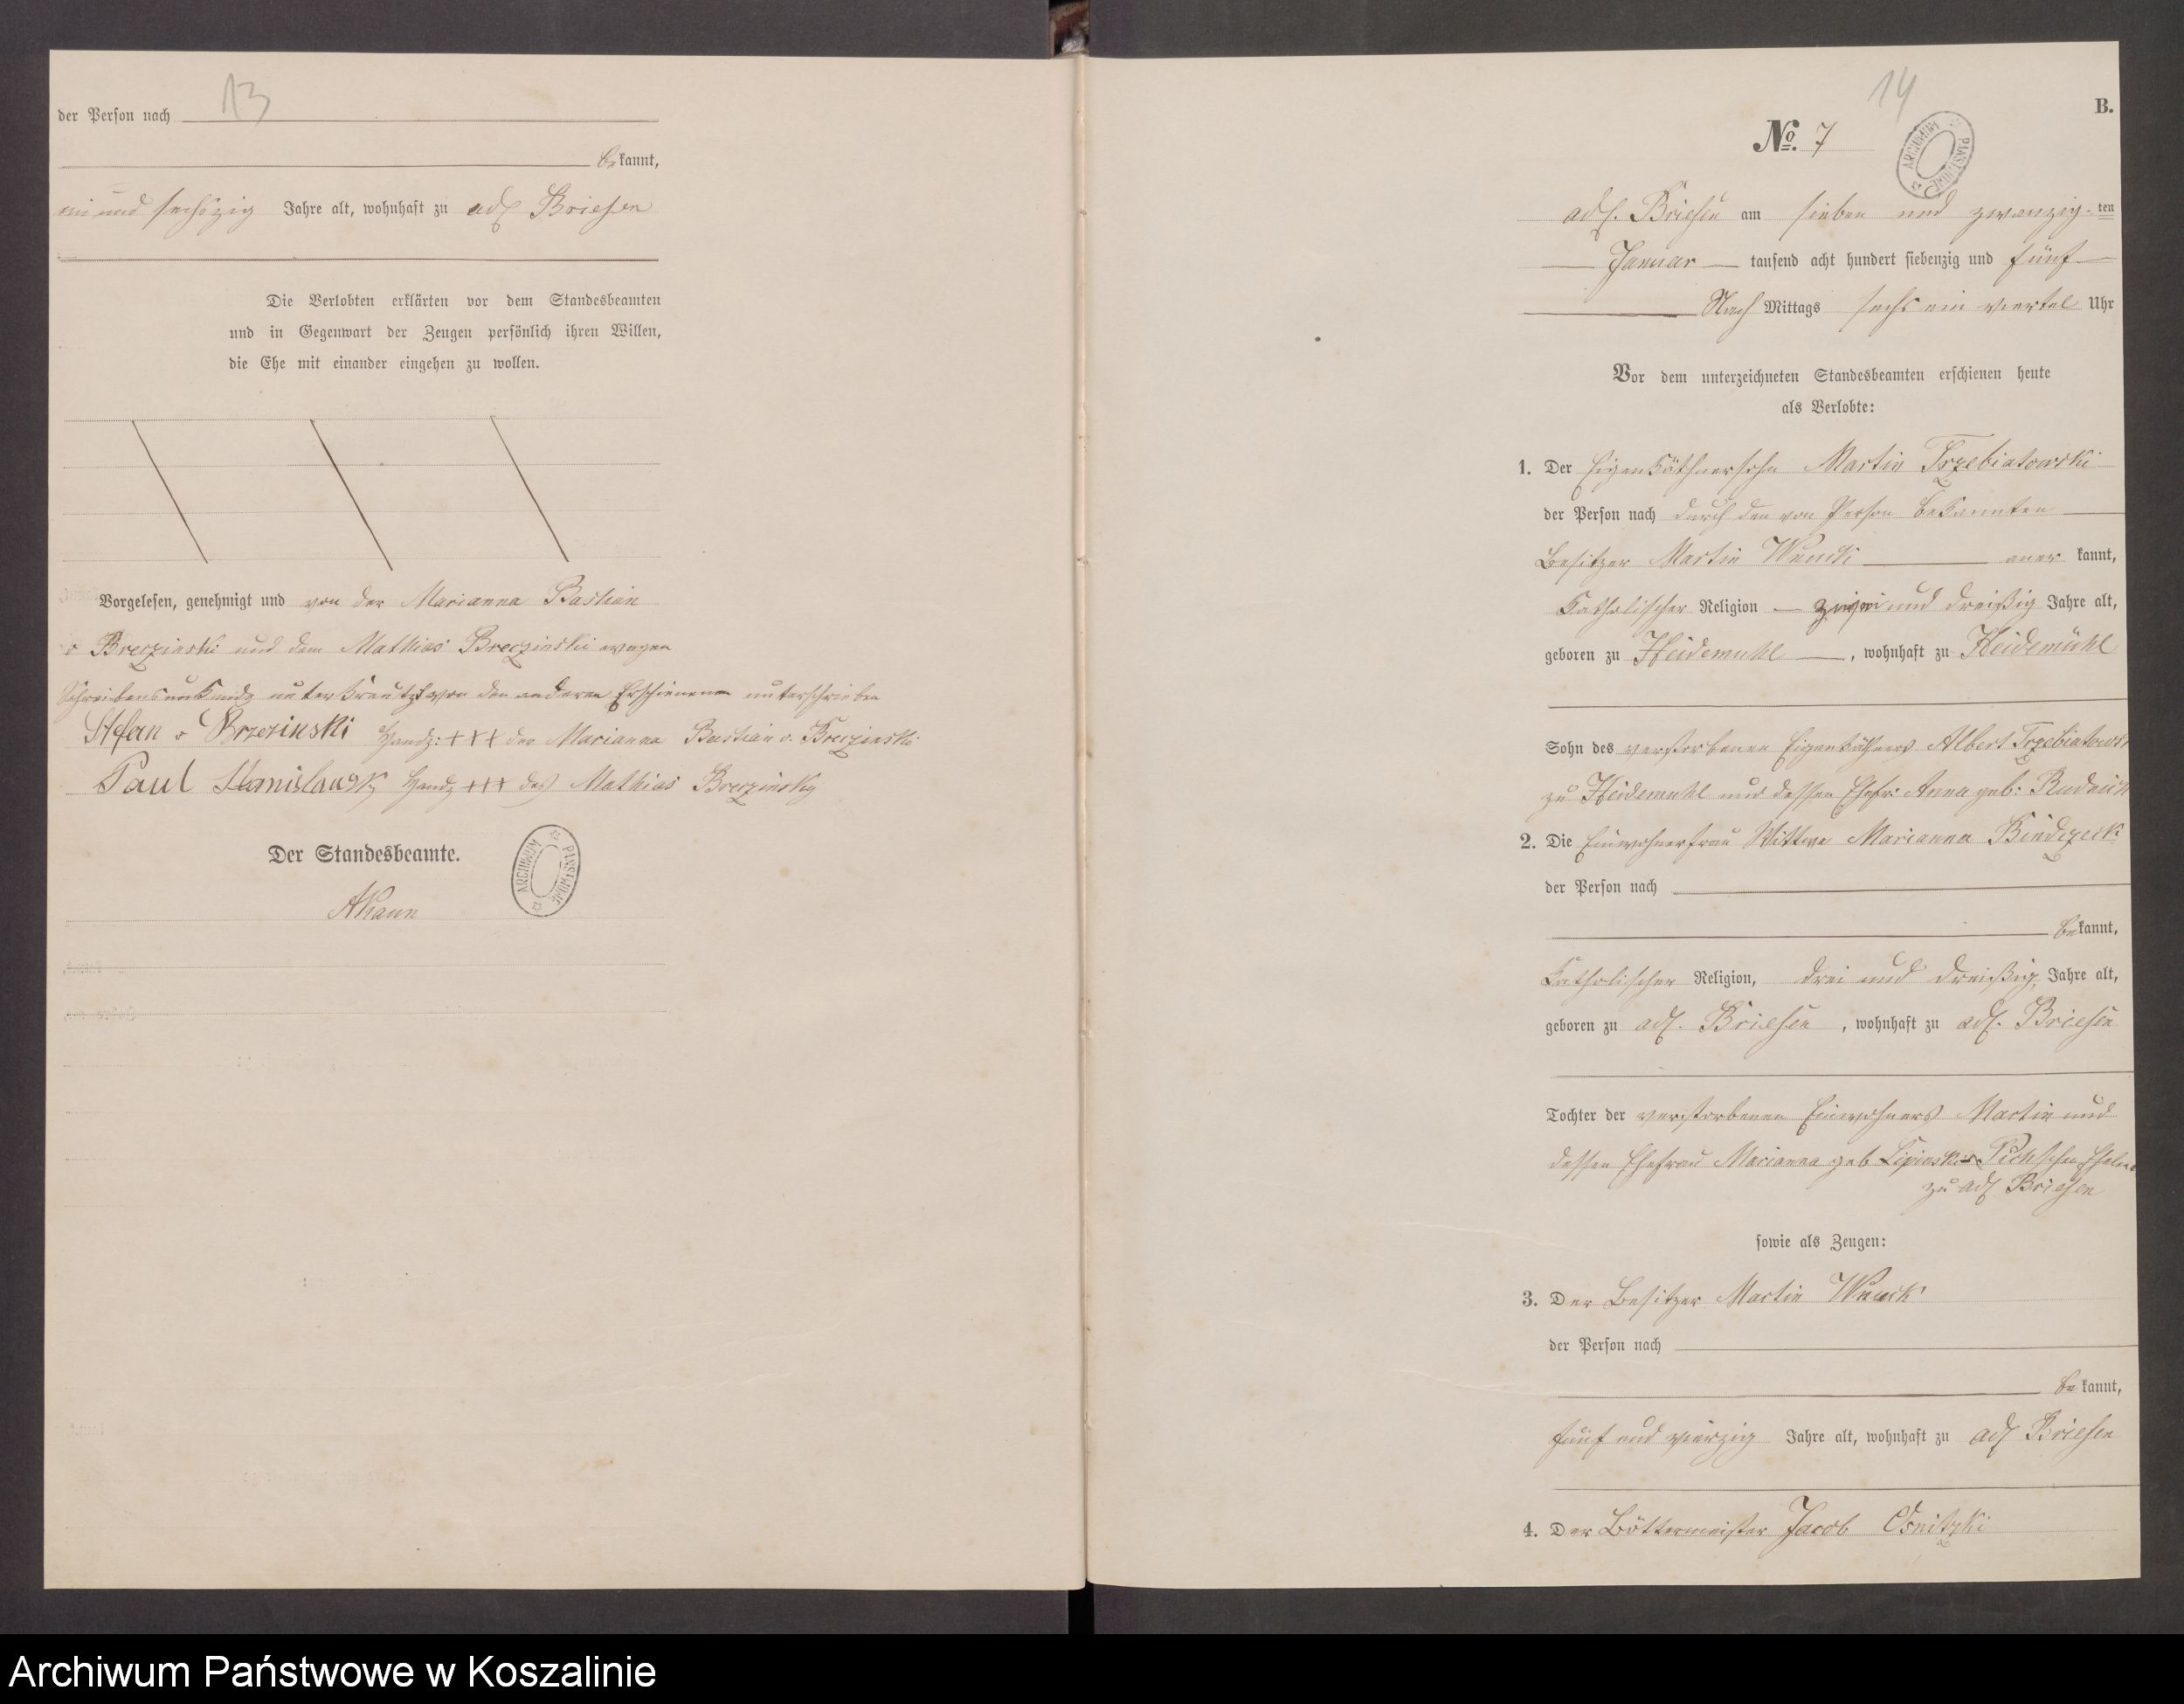 13
der Person nach
bekannt,
und sechszig Jahre alt, wohnhaft zu adl Briesen
Die Verlobten erklärten vor dem Standesbeamten
und in Gegenwart der Zeugen persönlich ihren Willen,
die Ehe mit einander eingehen zu wollen.
Vorgelesen, genehmigt und von der Marianna Bastian
v Breczinski und dem Mathias Breczinski wegen
Schreibensunkunde unterkreutzt von den anderen Erschienenen unterschrieben
Stefan v Brzezinski Handz: +++ der Marianna Bastian v. Breczinski
Paul Stanislausky Handz +++ des Mathias Breczinsky
Der Standesbeamte.
ARCHIWUM PAŃSTWOWE
14
B.
No. 7
ARCHIWUM PAŃSTWOWE
adl. Briesen am sieben und zwanzig-ten
Januar tausend acht hundert siebenzig und fünf
Nach Mittags sechs ein viertel Uhr
Vor dem unterzeichneten Standesbeamten erschienen heute
als Verlobte:
1. Der Eigenkäthnersohn Martin Trzebiatowski
der Person nach durch den von Person bekannten
Besitzer Martin aner kannt,
Katholischer Religion zwei und dreißig Jahre alt,
geboren zu Heidemuhl, wohnhaft zu Heidemühl
Sohn des verstorbenen Eigenkäthners Albert Trzebiatowski
zu Heidemuhl und dessen Ehefr: Anna geb:
2. Die Einwohnerfrau Wittwe Marianna
der Person nach
bekannt,
Katholischer Religion, drei und dreißig Jahre alt,
geboren zu adl. Briesen, wohnhaft zu adl. Briesen
Tochter der verstorbenen Einwohners Martin und
dessen Ehefrau Marianna geb Lipinski
zu adl Briesen
sowie als Zeugen:
3. Der Besitzer Martin
der Person nach
bekannt,
fünf und vierzig Jahre alt, wohnhaft zu adl Briesen
4. Der Böttermeister Jacob Osnitzki
Archiwum Państwowe w Koszalinie